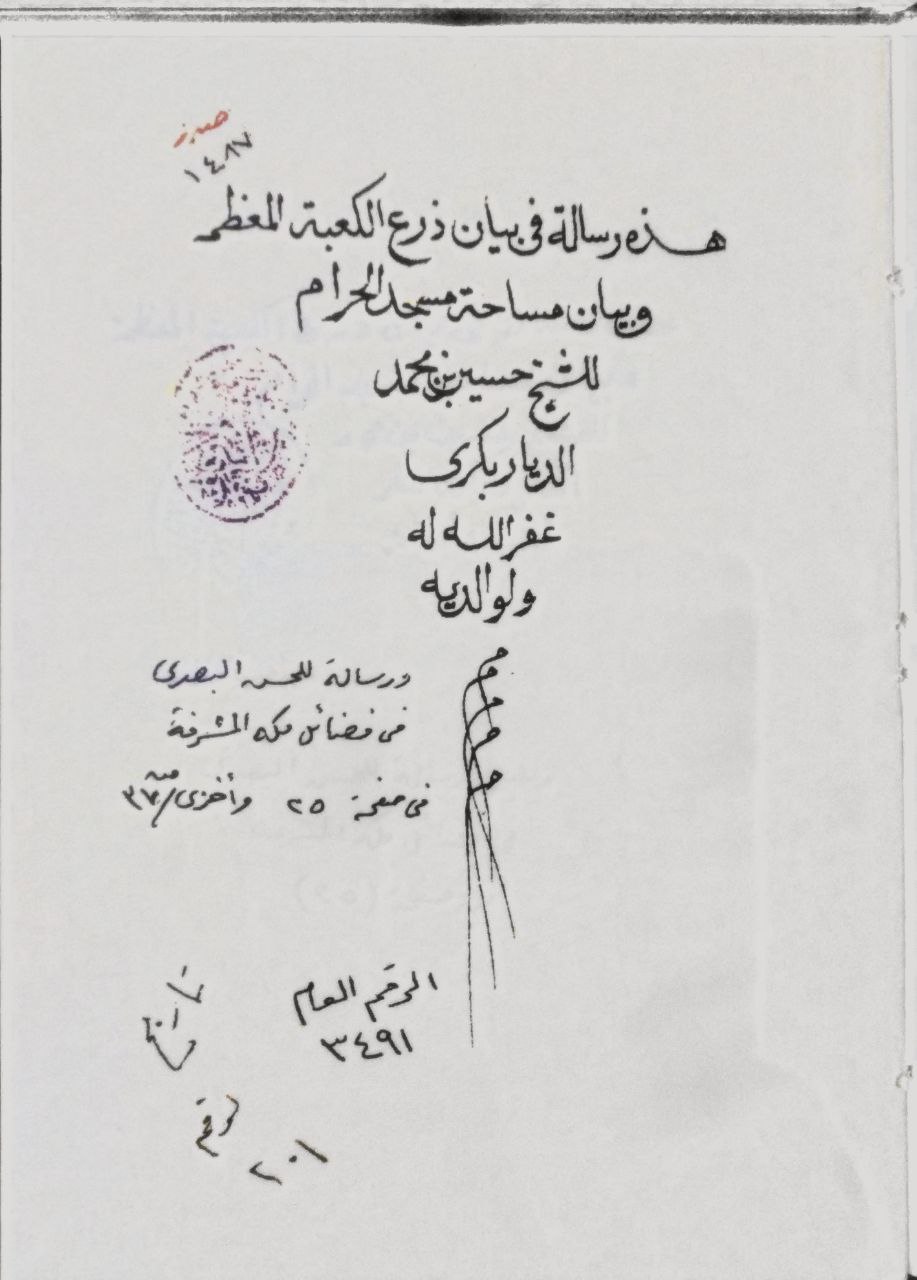 ١٤٨٧
هذه رسالة في بيان ذرع الكعبة المعظمه
وبيان مساحة مسجد الحرام
للشيخ حسين بن محمد
الديار بكرى
غفر الله له
ولوالديه
م
م
م
م
م
ورسالة للحسن البصرى
فى فضائل مكه المشرفة
فى صفحة ٢٥ وأخرى من / ٣٧
الرقم العام
٣٤٩١
تاريخ
رقم
٢٠١